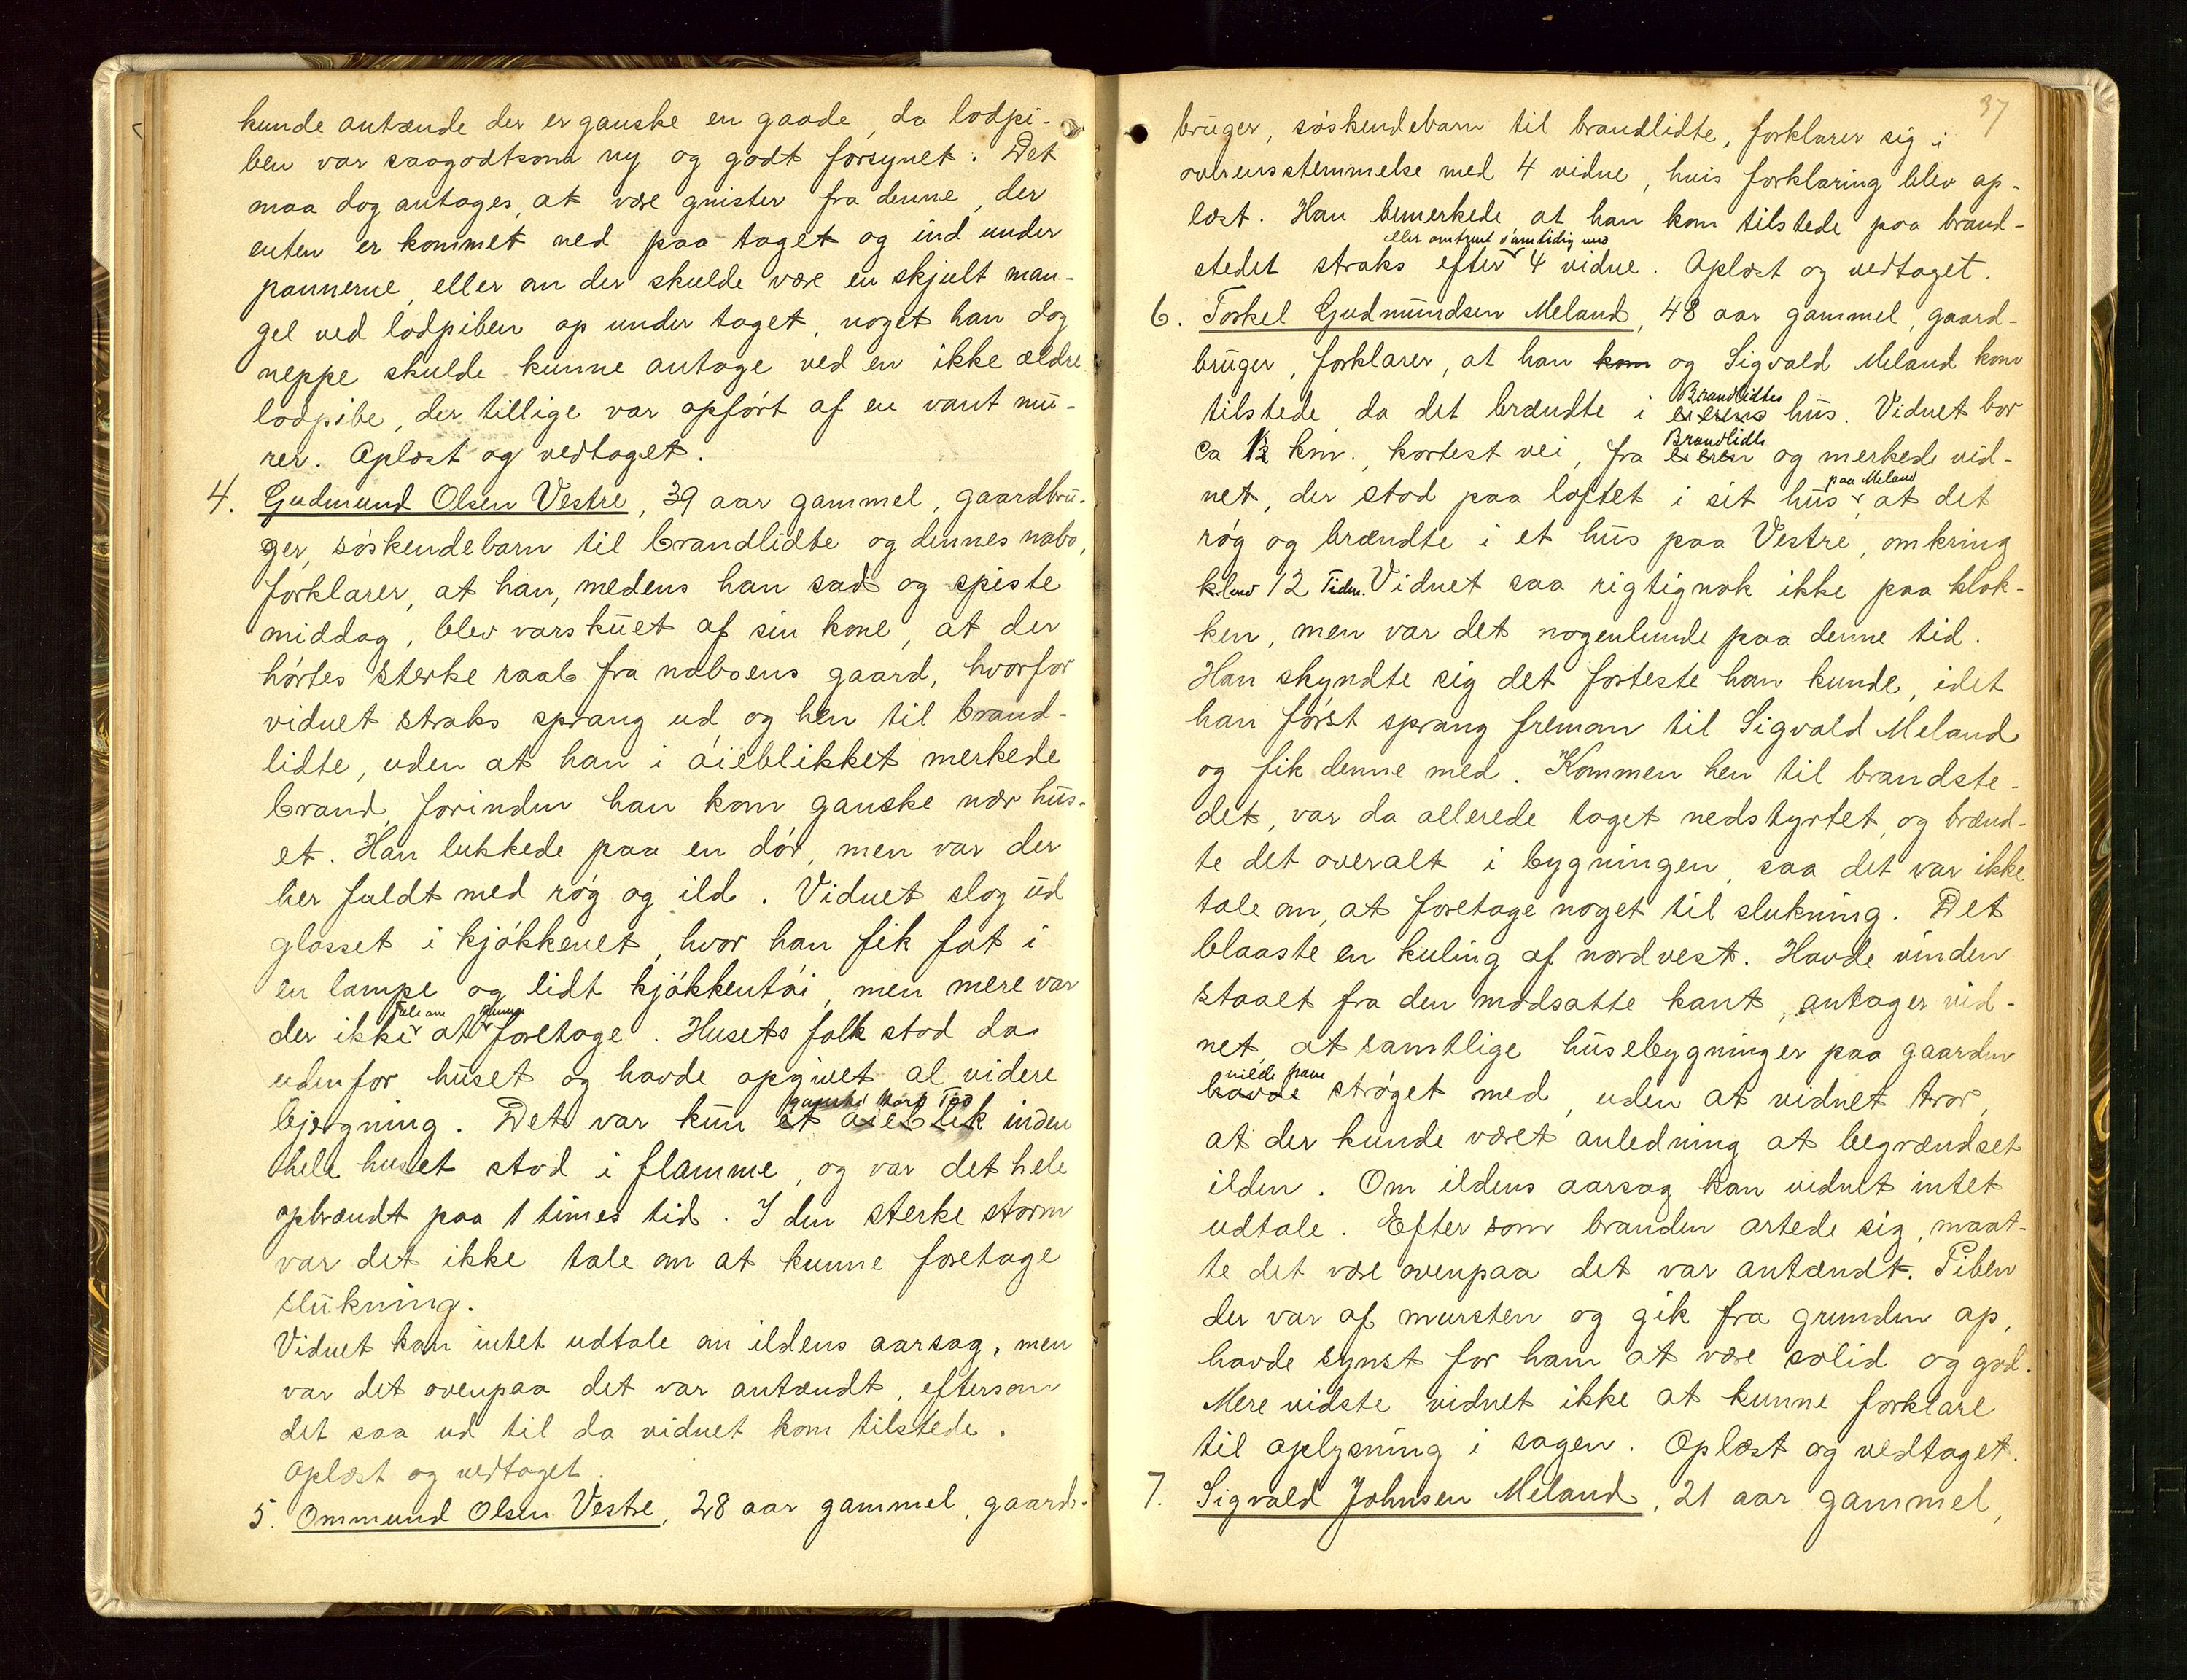 kunde antænde der er ganske en gaade, da lodpi-
ben var saagodtsom ny og godt forsynet. Det
maa dog antages, at være gnister fra denne, der
enten er kommet ned paa taget og ind under
pannerne, eller om der skulde være en skjult man-
gel ved lodpiben op under taget, noget han dog
neppe skulde kunne antage ved en ikke ældre
lodpibe, der tillige var opført af en vant mu-
rer. Oplæst og vedtaget.
4. Gudmund Olsen Vestre, 39 aar gammel, gaardbru-
ger, søskendebarn til brandlidte og dennes nabo,
forklarer, at han, medens han sad og spiste
middag, blev varskuet af sin kone, at der
hørtes sterke raab fra naboens gaard, hvorfor
vidnet straks sprang ud og hen til brand-
lidte, uden at han i øieblikket merkede
brand, forinden han kom ganske nær hus-
et. Han lukkede paa en dør, men var der
her fuldt med røg og ild. Vidnet slog ud
glasset i kjøkkenet, hvor han fik fat i
en lampe og lidt kjøkkentøi, men mere var
Tale om kunne
der ikke at foretage. Husets folk stod da
udenfor huset og havde opgivet al videre
ganske kort Tid
bjergning. Det var kun et øieblik inden
hele huset stod i flamme, og var det hele
opbrændt paa 1 times tid. I den sterke storm
var det ikke tale om at kunne foretage
slukning.
Vidnet kan intet udtale om ildens aarsag, men
var det ovenpaa det var antændt, eftersom
det saa ud til da vidnet kom tilstede.
Oplæst og vedtaget.
5. Ommund Olsen Vestre, 28 aar gammel, gaard-
37
bruger, søskendebarn til brandlidte, forklarer sig i
overensstemmelse med 4 vidne, hvis forklaring blev op-
læst. Han bemerkede at han kom tilstede paa brand-
eller omtrent samtidig med
stedet straks efter 4 vidne. Oplæst og vedtaget.
6. Torkel Gudmundsen Meland, 48 aar gammel, gaard-
bruger, forklarer, at han kom og Sigvald Meland kom
Brandlidtes
tilstede, da det brændte i eierens hus. Vidnet bor
Brandlidte
ca 1/2 km., kortest vei, fra eieren og merkede vid-
paa Meland
net, der stod paa loftet i sit hus, at det
røg og brændte i et hus paa Vestre, omkring
12 Tiden. Vidnet saa rigtignok ikke paa klok-
ken, men var det nogenlunde paa denne tid.
Han skyndte sig det forteste han kunde, idet
han først sprang fremom til Sigvald Meland
og fik denne med. Kommen hen til brandste-
det, var da allerede taget nedstyrtet, og brænd-
te det overalt i bygningen, saa det var ikke
tale om, at foretage noget til slukning. Det
blaaste en kuling af nordvest. Havde vinden
staaet fra den modsatte kant, antager vid-
net, at samtlige husebygninger paa gaarden
vilde have
havde strøget med, uden at vidnet tror,
at der kunde været anledning at begrændset
ilden. Om ildens aarsag kan vidnet intet
udtale. Efter som branden artede sig, maat-
te det være ovenpaa det var antændt. Piben
der var af mursten og gik fra grunden op,
havde synst for ham at være solid og god.
Mere vidste vidnet ikke at kunne forklare
til oplysning i sagen. Oplæst og vedtaget.
7. Sigvald Johnsen Meland, 21 aar gammel,